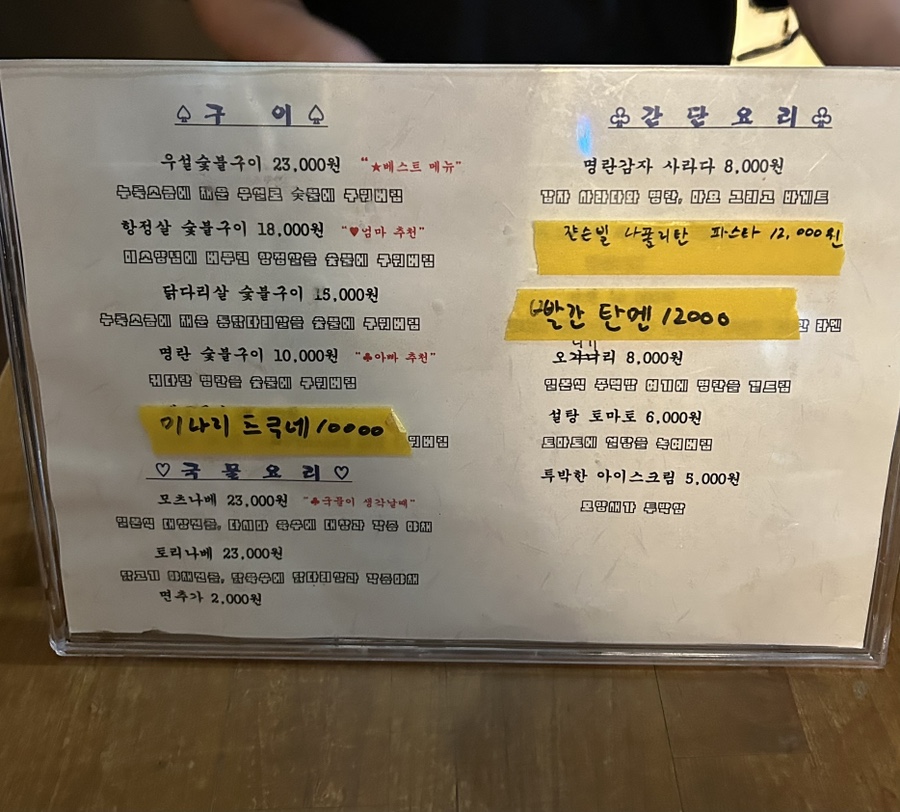 ♤구 이♤
우설숯불구이 23,000원 "★베스트 메뉴"
누룩소금에 재운 우설로 숯불에 구워버림
항정살 숯불구이 18,000원 "♥엄마 추천"
미소양념에 버무린 항정살을 숯불에 구워버림
닭다리살 숯불구이 15,000원
누룩소금에 재운 통닭다리살을 숯불에 구워버림
명란 숯불구이 10,000원 "♣아빠 추천"
커다란 명란을 숯불에 구워버림
미나리 드쿠네 10000
워버림
♡국 물 요 리♡
모츠나베 23,000원 "♣국물이 생각날때"
일본식 대창전골, 다시마 육수에 대창과 각종 야채
토리나베 23,000원
닭고기 야채전골, 닭육수에 닭다리살과 각종야채
면추가 2,000원
♧간 단 요 리♧
명란감자 사라다 8,000원
감자 사라다와 명란, 마요 그리고 바게트
쟌슨빌 나폴리탄 파스타 12,000원
빨간 탄멘 12000
라멘
오니기리 8,000원
일본식 주먹밥 여기에 명란을 곁드림
설탕 토마토 6,000원
토마토에 설탕을 녹여버림
투박한 아이스크림 5,000원
모양새가 투박함